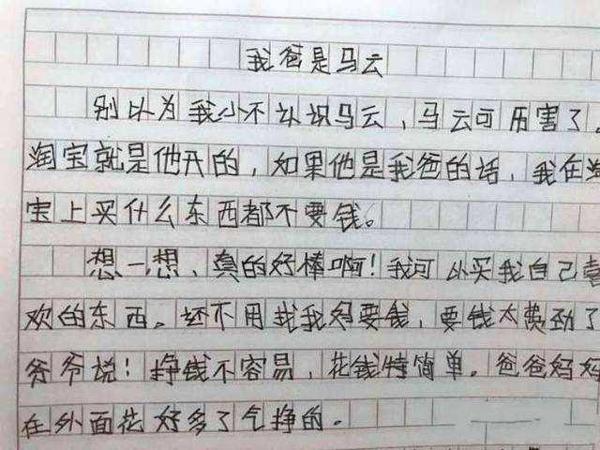 我爸是马云
别以为我小不认识马云,马云可历害了。
淘宝就是他开的,如果他是我爸的话,我在淘
宝上买什么东西都不要钱。
想一想,真的好棒啊!我可以买我自己喜
欢的东西。还不用找我妈要钱,要钱太费劲了
爷爷说:挣钱不容易,花钱特简单。爸爸妈妈
在外面花好多了气挣的。